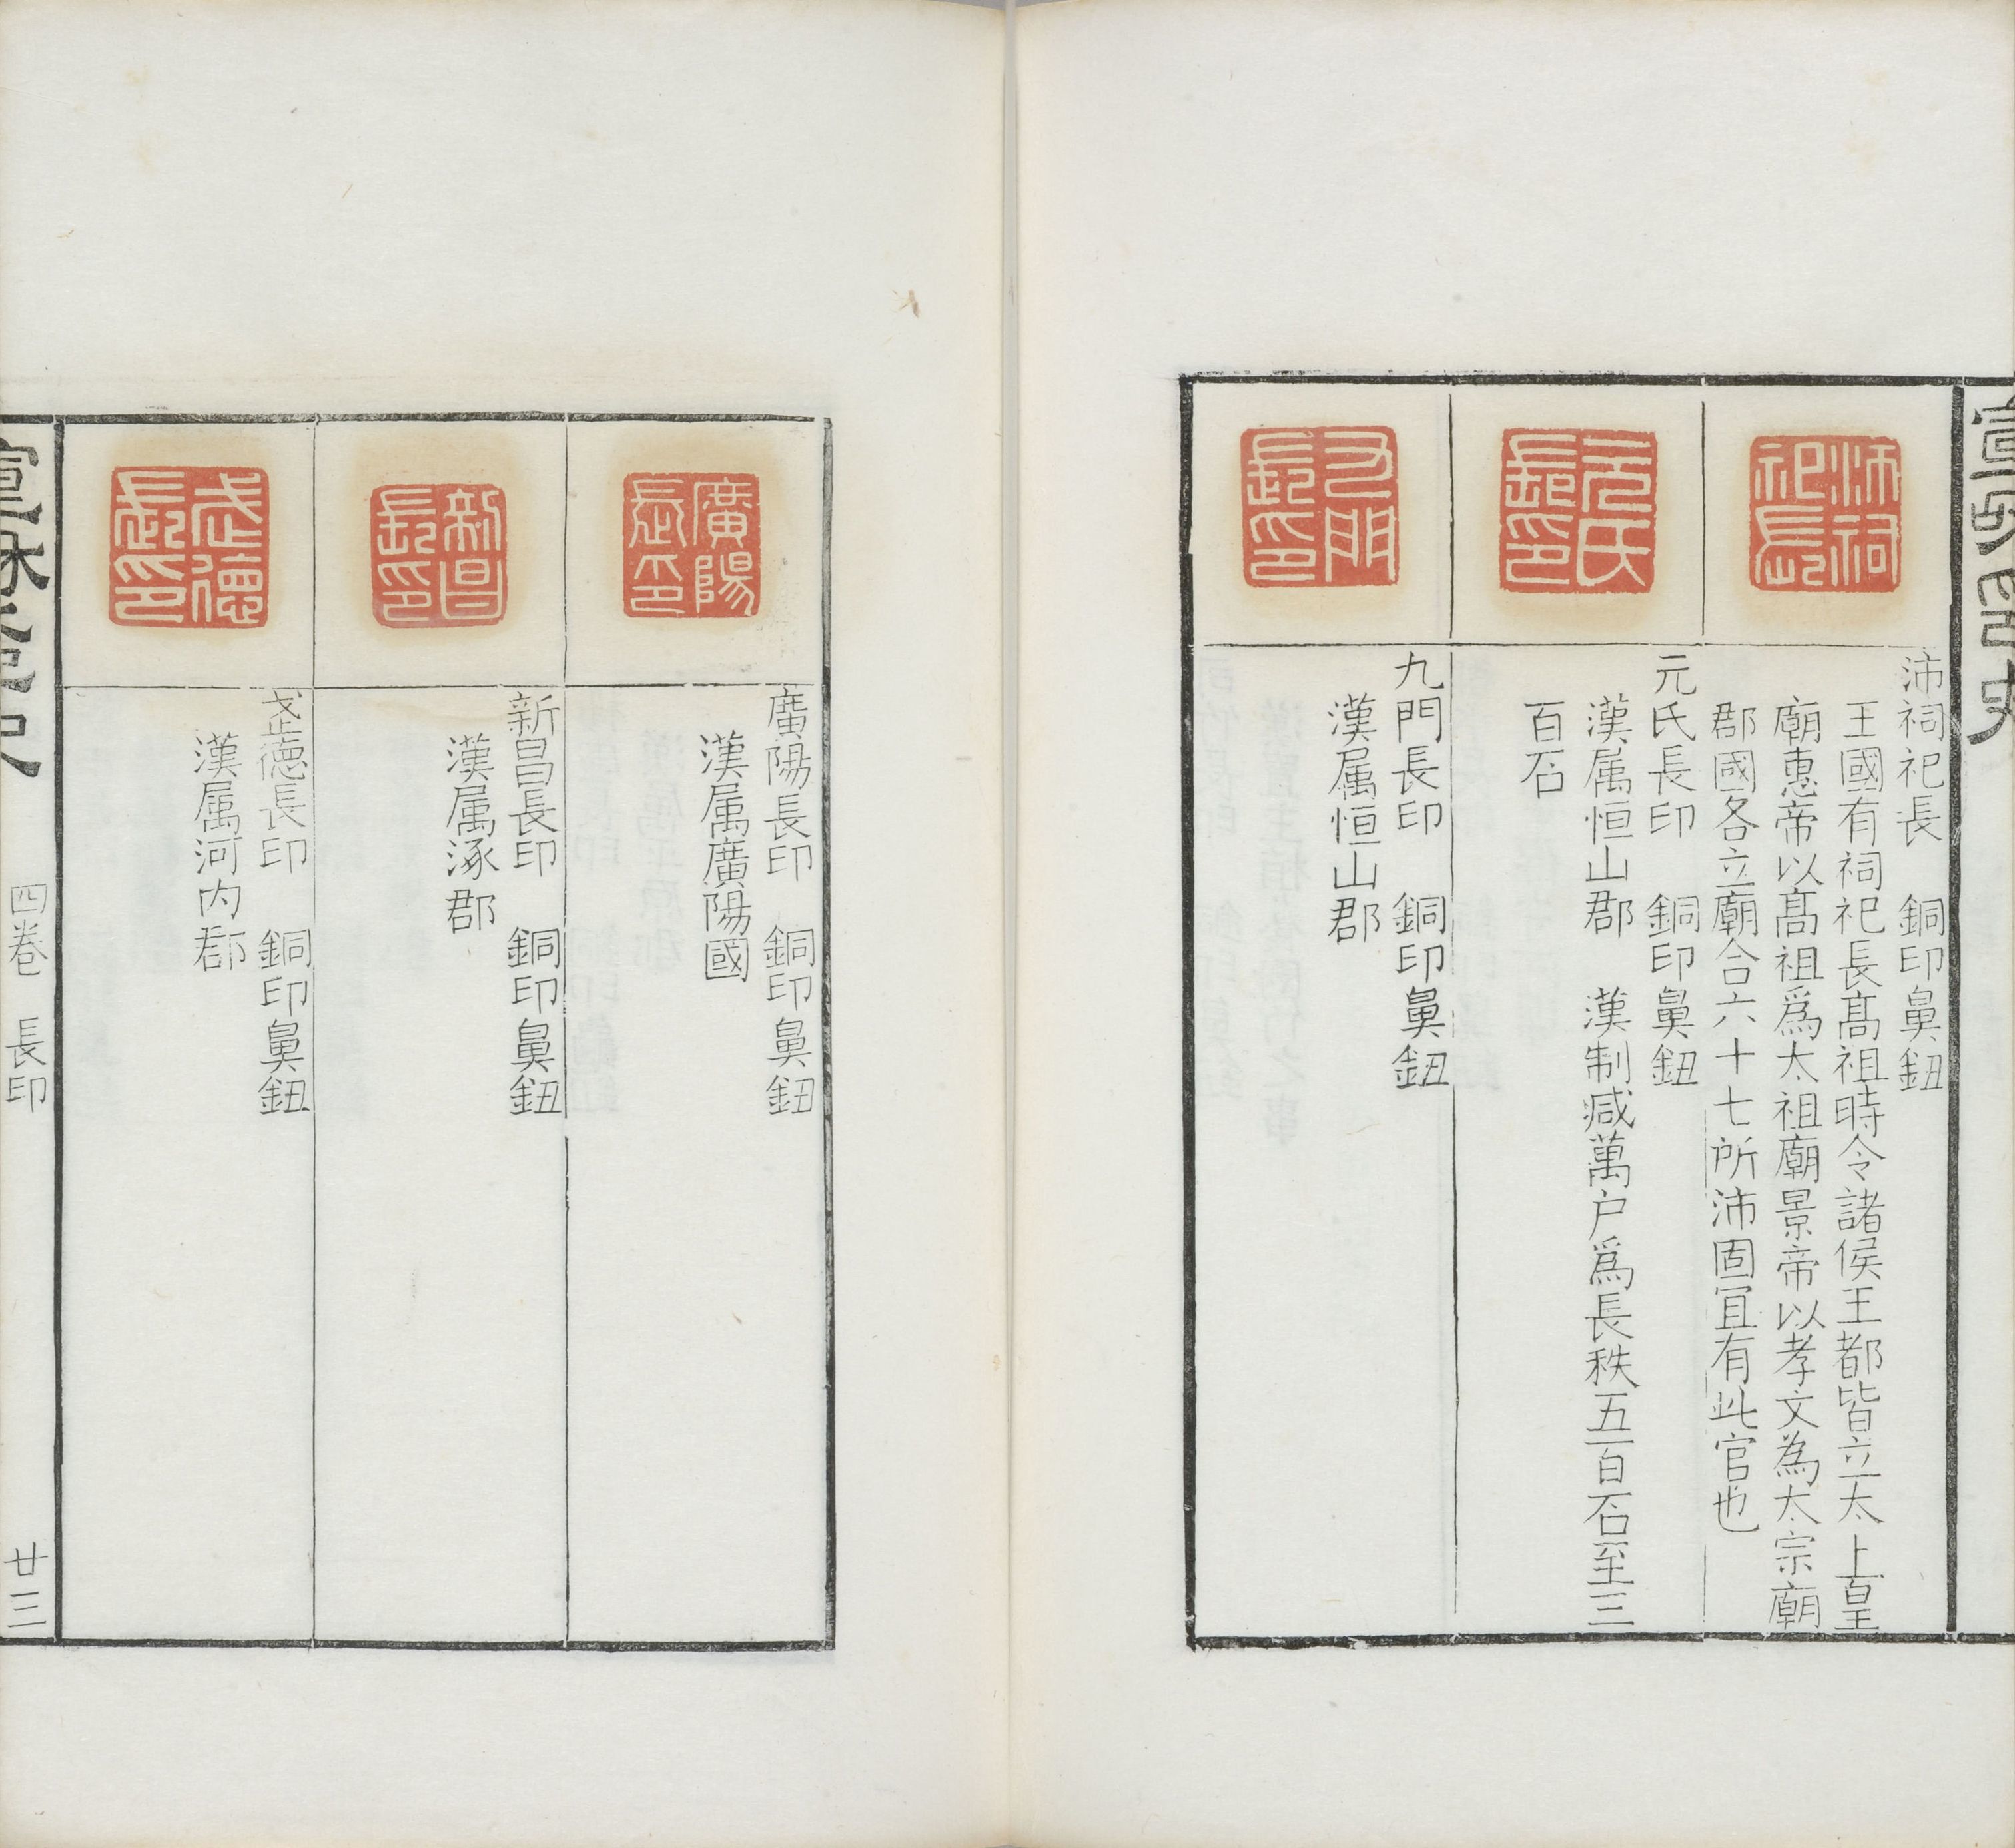 宣和印史
沛祠祀長　銅印鼻鈕
王國有祠祀長髙祖時令諸侯王都皆立太上皇
廟惠帝以髙祖爲太祖廟景帝以孝文為太宗廟
郡國各立廟合六十七所沛固冝有此官也
元氏長印　銅印鼻鈕
漢属恒山郡　漢制减萬户爲長秩五百石至三
百石
九門長印　銅印鼻鈕
漢属恒山郡
沛祠祀長
元氏長印
九門長印
廣陽長印　銅印鼻鈕
漢属廣陽國
新昌長印　銅印鼻鈕
漢属涿郡
武德長印　銅印鼻鈕
漢属河内郡
廣陽長印
新昌長印
武德長印
宣和印史
四卷　長印
廿三